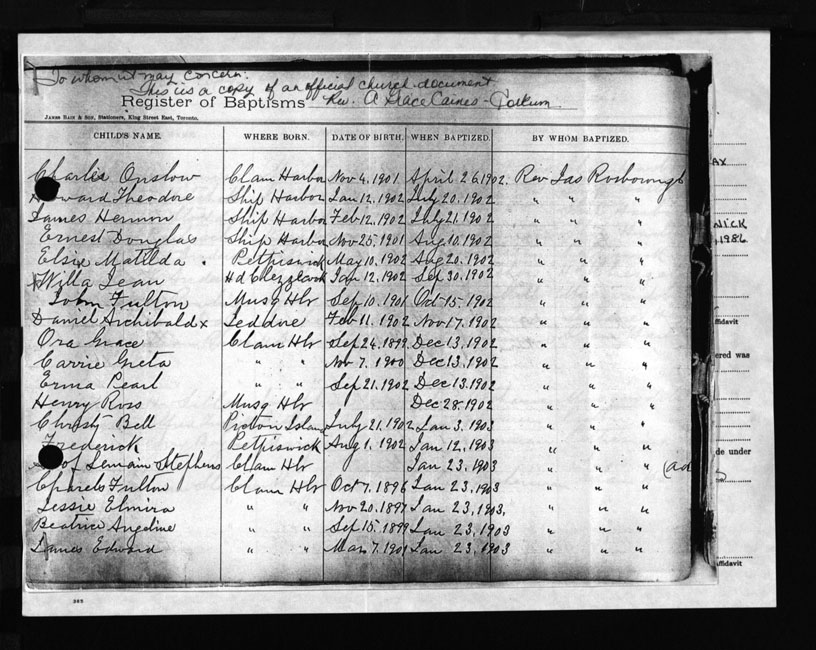 To whom it may concern:
This is a copy of an official church document
Register of Baptisms Rev. A. Grace Caines-Corkum
James Bain & Son, Stationers, King Street East, Toronto.
CHILD'S NAME. WHERE BORN. DATE OF BIRTH. WHEN BAPTIZED. BY WHOM BAPTIZED.
Charlie Onslow Clam Harbor Nov 4, 1901 April 26, 1902. Rev Jas Rosborough
Howard Theodore Ship Harbor Jan 12, 1902 July 20, 1902 " " "
James Hermon Ship Harbor Feb 12, 1902 July 21, 1902 " " "
Ernest Douglas Ship Harbor Nov 25, 1901 Aug 10, 1902 " " "
Elsie Matilda Petpiswick May 10, 1902 Aug 20, 1902 " " "
X Willa Jean Hd Chezzetcook Jan 12, 1902 Sep 30, 1902 " " "
John Fulton Musq Hbr Sep 10, 1901 Oct 15, 1902 " " "
Daniel Archibald x Jeddore Feb 11, 1902 Nov 17, 1902 " " "
Ora Grace Clam Hbr Sep 24, 1899 Dec 13, 1902 " " "
Carrie Greta " " Nov 7, 1900 Dec 13, 1902 " " "
Erma Pearl " " Sep 21, 1902 Dec 13, 1902 " " "
Henry Ross Musq Hbr Dec 28, 1902 " " "
Christy Bell Picton Island July 21, 1902 Jan 3, 1903 " " "
Frederick Petpiswick Aug 1, 1902 Jan 12, 1903 " " "
of Lemain Stephens Clam Hbr Jan 23, 1903 " " " (ad
Charels Fulton Clam Hbr Oct 7, 1896 Jan 23, 1903 " " "
Jessie Elmira " " Nov 20, 1897 Jan 23, 1903, " " "
Beatrice Angeline Sep 15, 1899 Jan 23, 1903 " " "
James Edward " " Mar 7, 1901 Jan 23, 1903 " " "
AX
NICK
, 1986
ffidavit
ered was
de under
ffidavit